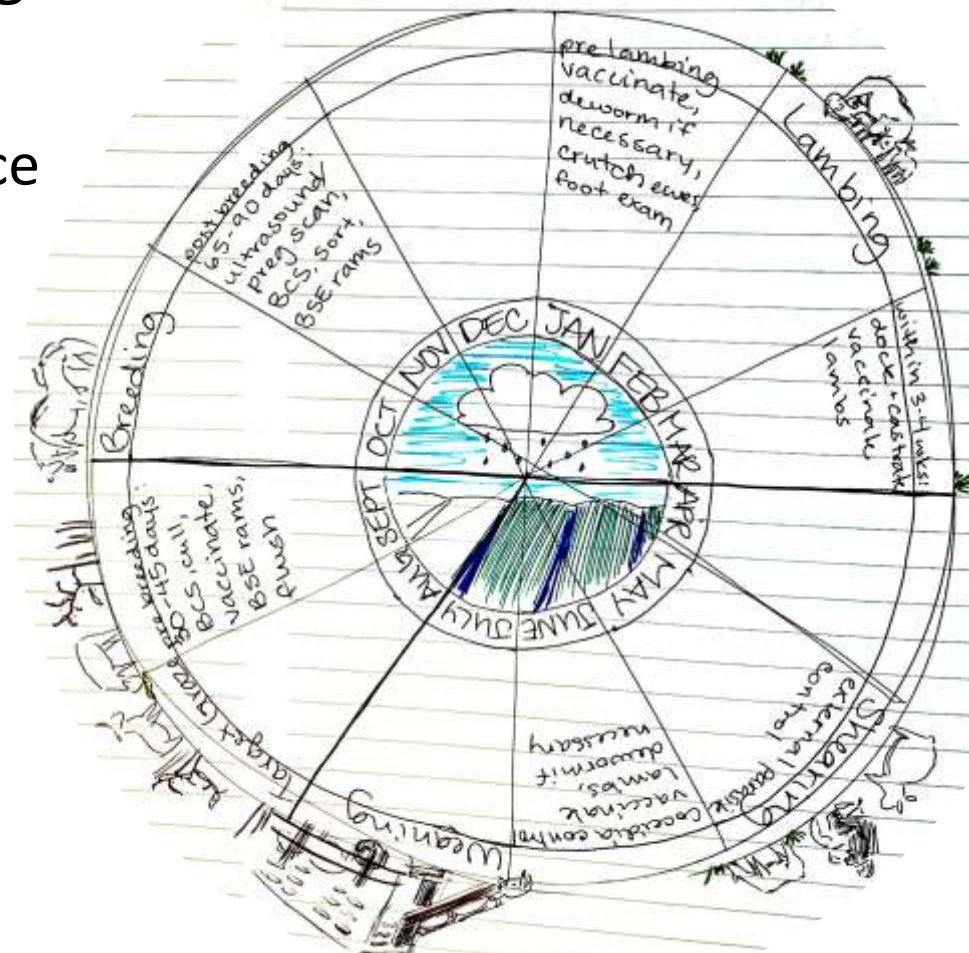 ce
pre lambing
vaccinate,
deworm if
necessary,
crutch ewes,
foot exam
Lambing
within 3-4 wks:
dock + castrate
vaccinate
lambs
Shearing
external parasite
control
coccidia control
vaccinate
lambs,
deworm if
necessary
Weaning
Target Graze
pre breeding
30-45 days:
BCS, cull,
vaccinate,
BSE rams,
flush
Breeding
post breeding
65-90 days:
ultrasound/
preg scan,
BCS, sort,
BSE rams
JAN
FEB
MAR
APR
MAY
JUNE
JULY
AUG
SEPT
OCT
NOV
DEC